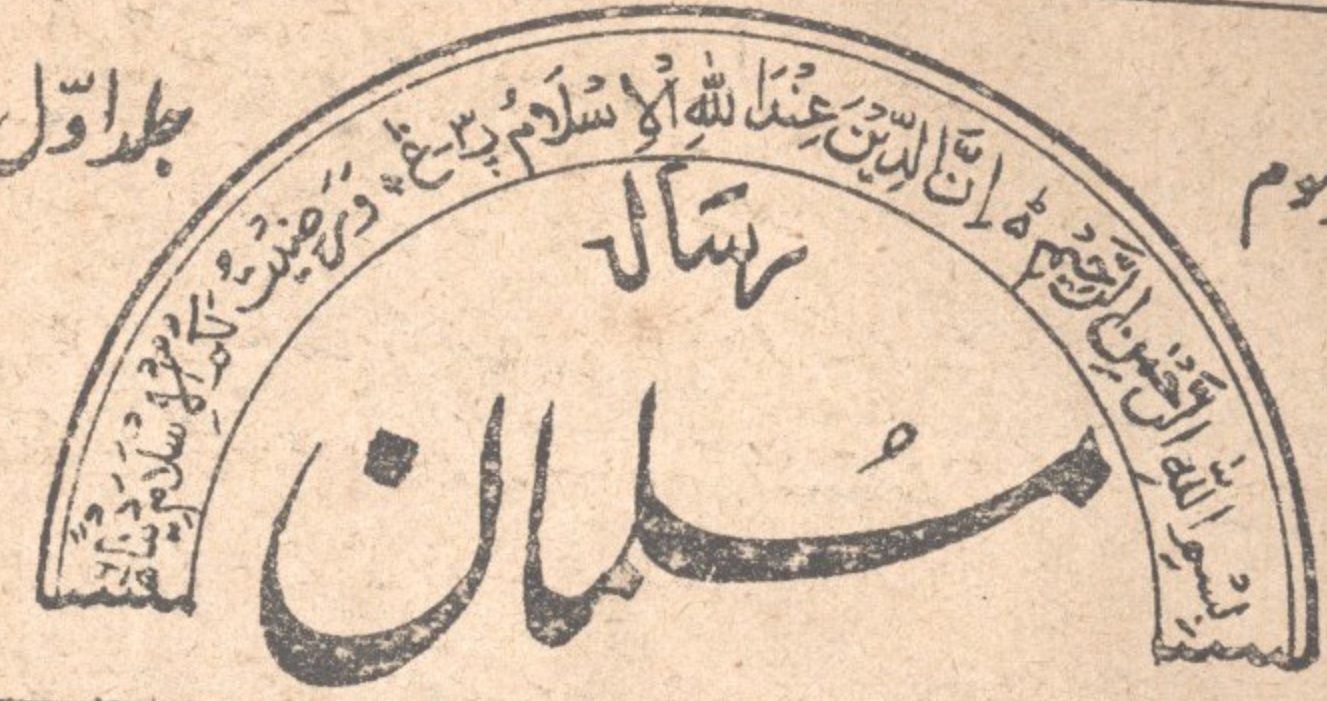 جلد اوّل
بِسْمِ اللّٰهِ الرَّحْمٰنِ الرَّحِيْمِ ۵ اِنَّ الدِّيْنَ عِنْدَ اللّٰهِ الْاِسْلَامُ پ۳ ع وَرَضِيْتُ لَكُمُ الْاِسْلَامَ دِيْنًا
رسالہ
مُسلمان